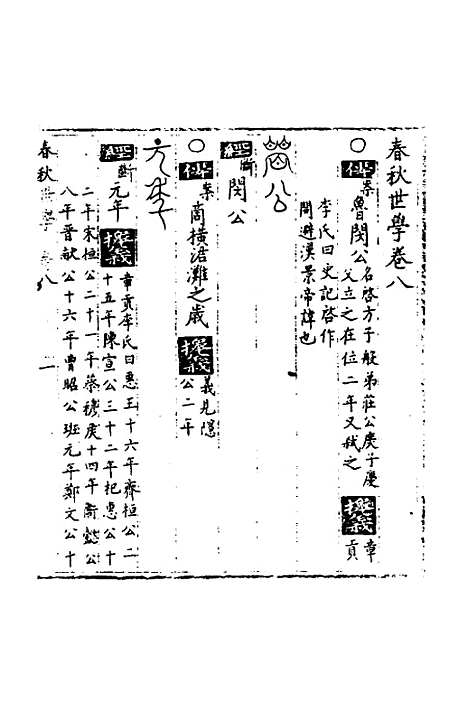 春秋世學卷八
○傳案魯閔公名啓方子般弟莊公庶子慶
父立之在位二年又弒之摭義章貢
李氏曰史記啓作
開避漢景帝諱也
公
經斷閔公
○傳案商橫涒灘之歲摭義義見隱
公二年
元年
經斷元年摭義章貢李氏曰惠王十六年齊桓公二
十五年陳宣公三十二年杞惠公十
二年宋桓公二十一年蔡穆侯十四年衞懿公
八年晉獻公十六年曹昭公班元年鄭文公十
春秋世學 卷八 一